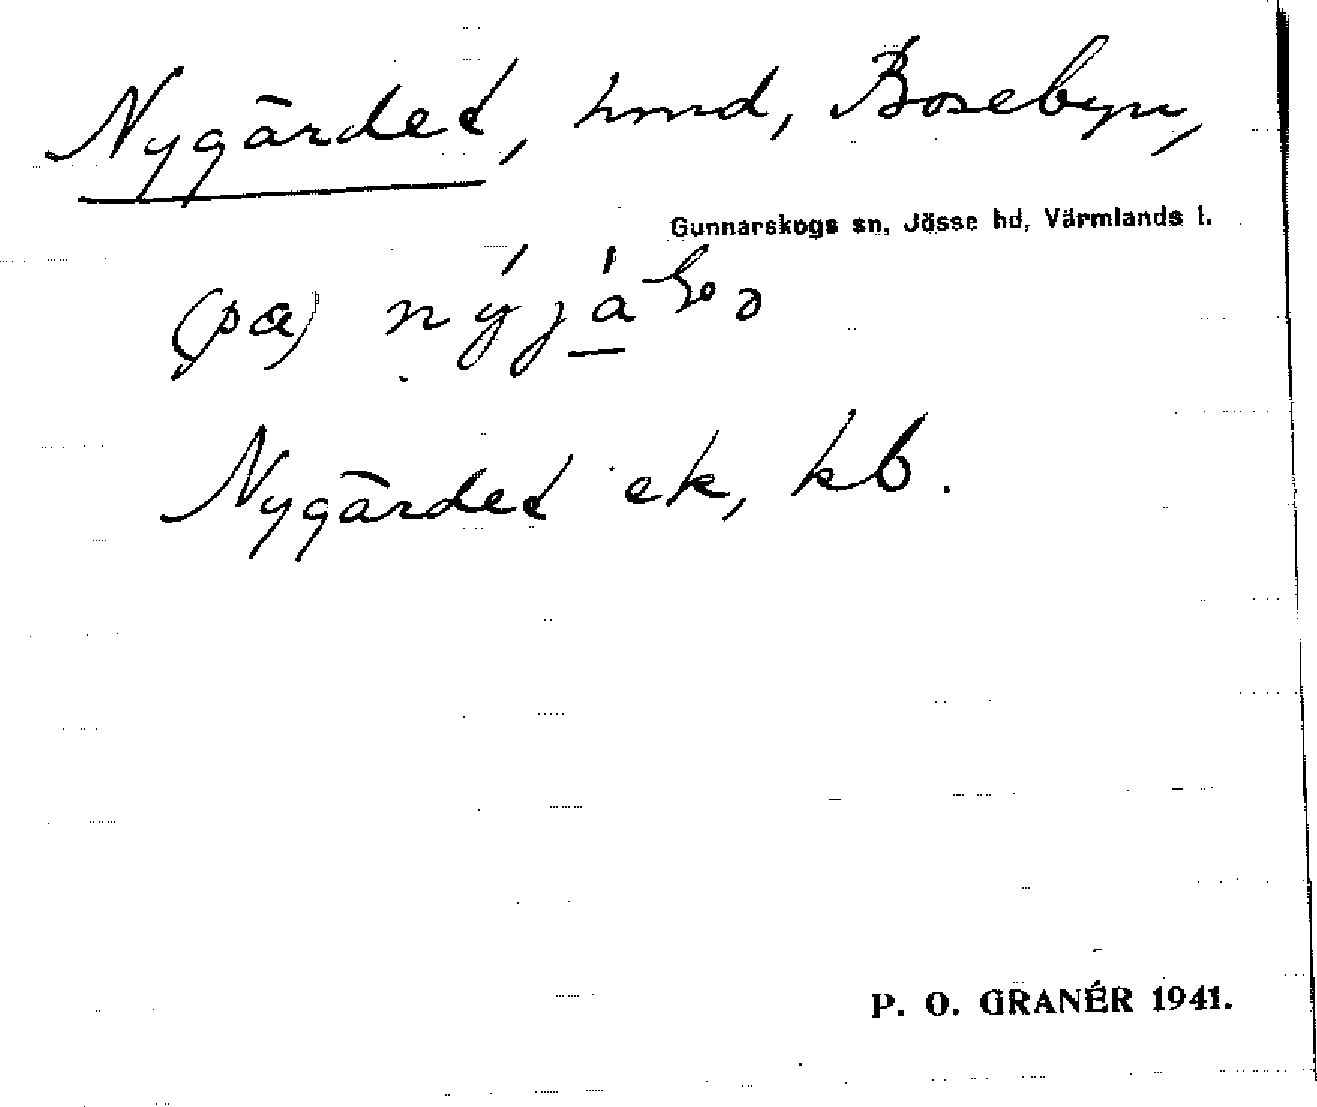 Nygärdet, hmd, Bosebyn,
Gunnarskogs sn, Jösse hd, Värmlands l.
(pa)
Nygärdet ek, kb.
P. O. GRANÉR 1941.